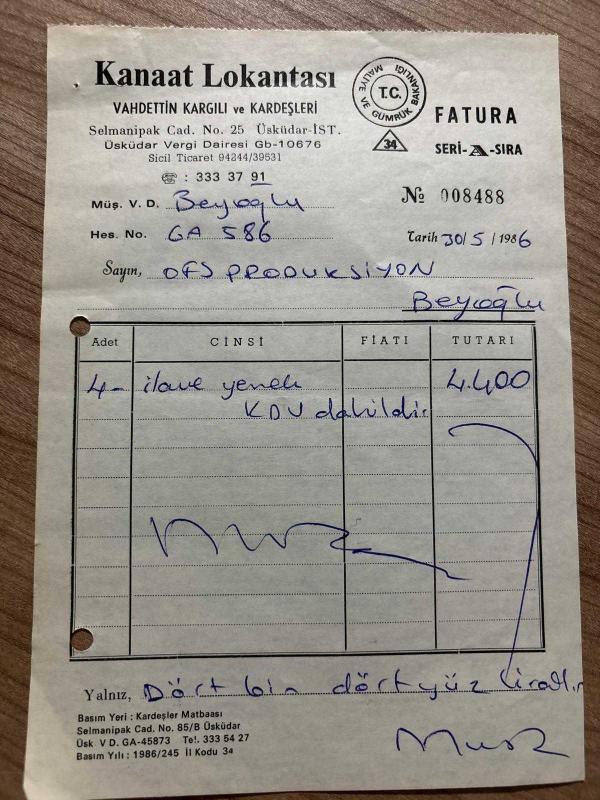 Kanaat Lokantası
VAHDETTİN KARGILI ve KARDEŞLERİ
Selmanipak Cad. No. 25 Üsküdar-İST.
Üsküdar Vergi Dairesi Gb-10676
Sicil Ticaret 94244/39531
☎ : 333 37 91
T.C.
MALİYE VE GÜMRÜK BAKANLIĞI
34
FATURA
SERİ-A-SIRA
Müş. V. D. Beyoğlu
№ 008488
Hes. No. GA 586
Tarih 30/5/1986
Sayın, OFS PRODUKSİYON
Beyoğlu
Adet CİNSİ FİATI TUTARI
4- ilave yemek 4.400
KDV dahildir.
Yalnız, Dört bin dörtyüz liradır
Basım Yeri : Kardeşler Matbaası
Selmanipak Cad. No. 85/B Üsküdar
Üsk V D. GA-45873 Tel. 333 54 27
Basım Yılı : 1986/245 İl Kodu 34